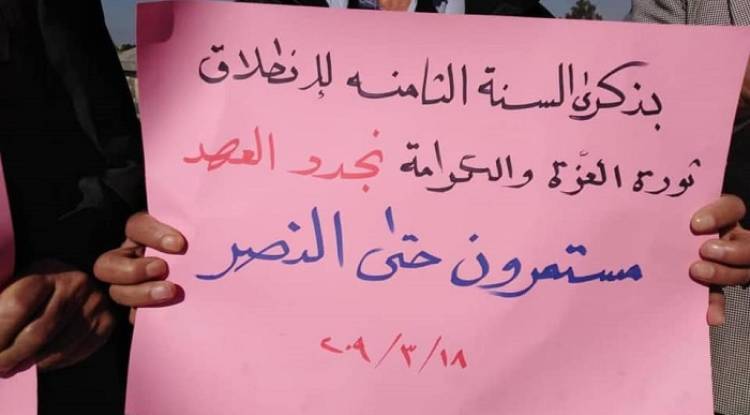 بذكرى السنة الثامنه للإنطلاق
ثورة العزّة والكرامة نجدد العهد
مستمرون حتى النصر
٢٠٩/٣/١٨